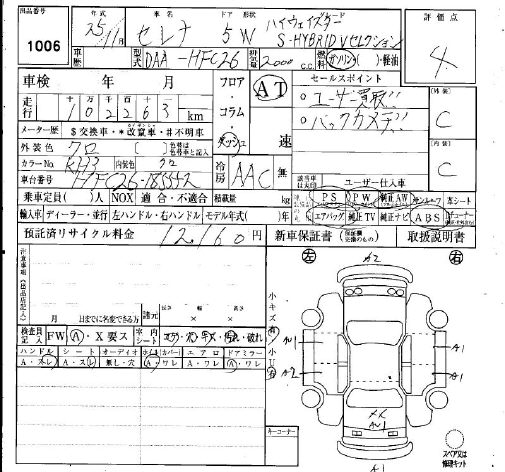 出品番号 年式 車名 ドア 形状 グレード 評価点
1006 25/11月 セレナ 5W ハイウェイスター S-HYBRID Vセレクション 4
車歴 型式 DAA-HFC26 排気量 2000 c.c. 燃料 ガソリン・( )・軽油
車検 年 月 フロア・コラム・ダッシュ AT 速 セールスポイント 外装 C
走行 十 万 千 百 十 一
102263 km
。ユーザー買取!!
。バックカメラ!!
メーター歴 $交換車・*改竄車・#不明車
外装色 クロ 〔 〕 色替車は元色
カラーNo. 内装色 クロ 冷房 AAC 無 内装 C
車台番号 HFC26- ユーザー仕入車
乗車定員( )人 NOX 適合・不適合 積載量 kg PS PW 純正AW サンルーフ 革シート
輸入車 ディーラー・並行 左ハンドル・右ハンドル モデル年式( )年 エアバッグ 純正TV 純正ナビ ABS
預託済リサイクル料金 12,160円 新車保証書 取扱説明書
注意事項(出品店記入)
左 A2 右
月 日までに名変できる方 諸元 長さ 幅 高さ
× ×
検査員記入 FW A・X要ス 車内シート コゲ・穴・キズ・汚れ・破れ
ハンドル シート オーディオ ホイルカバー エアロ ドアミラー
A・スレ A・スレ 無し・穴 A・ワレ A・ワレ A・ワレ
小キズ 有 小U
AU1 A1
A2 A1
××
AU1
キーコーナー
スペア又は修理キット
A1